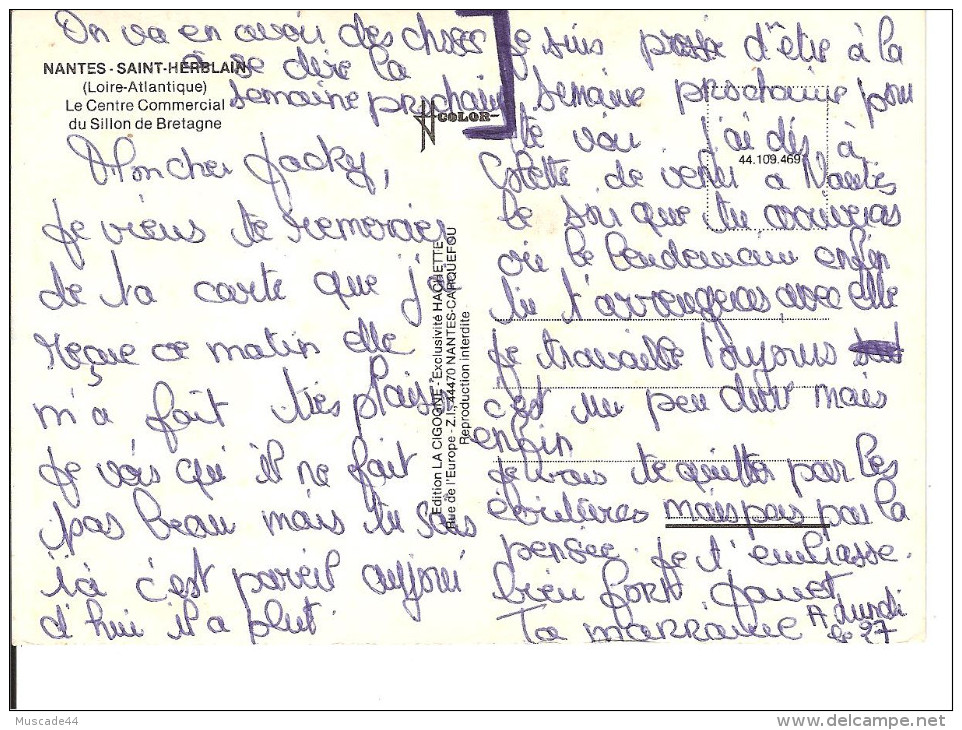 On va en avoir des choses
à se dire la
semaine prochaine
NANTES - SAINT-HERBLAIN
(Loire-Atlantique)
Le Centre Commercial
du Sillon de Bretagne
COLOR
44.109.469
Mon cher Jacky,
Je viens te remercier
de ta carte que j'ai
reçue ce matin elle
m'a fait très plaisir
Je vois qu'il ne fait
pas beau mais tu sais
ici c'est pareil aujourd
d'hui il a plut.
Edition LA CIGOGNE - Exclusivité HACHETTE
Rue de l'Europe - Z.I. 44470 NANTES-CARQUEFOU
Reproduction interdite
Je suis pressée d'être à la
semaine prochaine pour
te voir j'ai dis à
Colette de venir a Nantes
le soir que tu arriveras
ou le lendemain enfin
tu t'arrangeras avec elle
Je travaille toujours
c'est un peu dur mais
enfin
Je vais te quitter par les
écritures mais pas par la
pensée. Je t'embrasse
bien fort Janet
Ta marraine
A lundi
le 27
Muscade44
http://www.delcampe.net